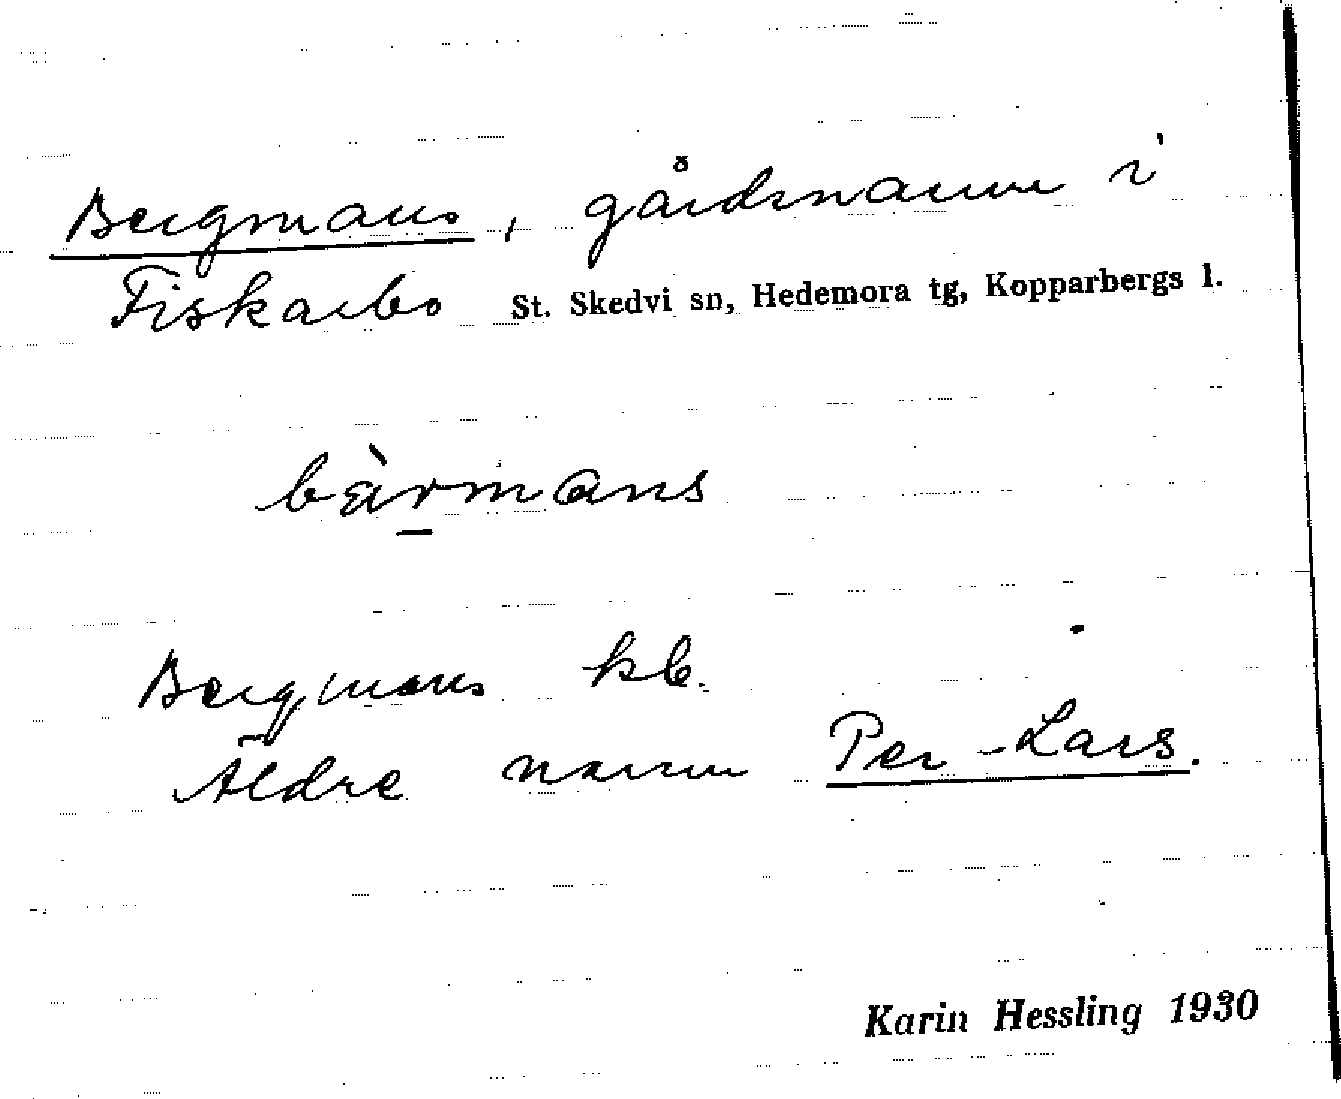 Bergmans, gårdsnamn i
Fiskarbo St. Skedvi sn, Hedemora tg, Kopparbergs l.
bàrmans
Bergmans kb.
Äldre namn Per-Lars.
Karin Hessling 1930